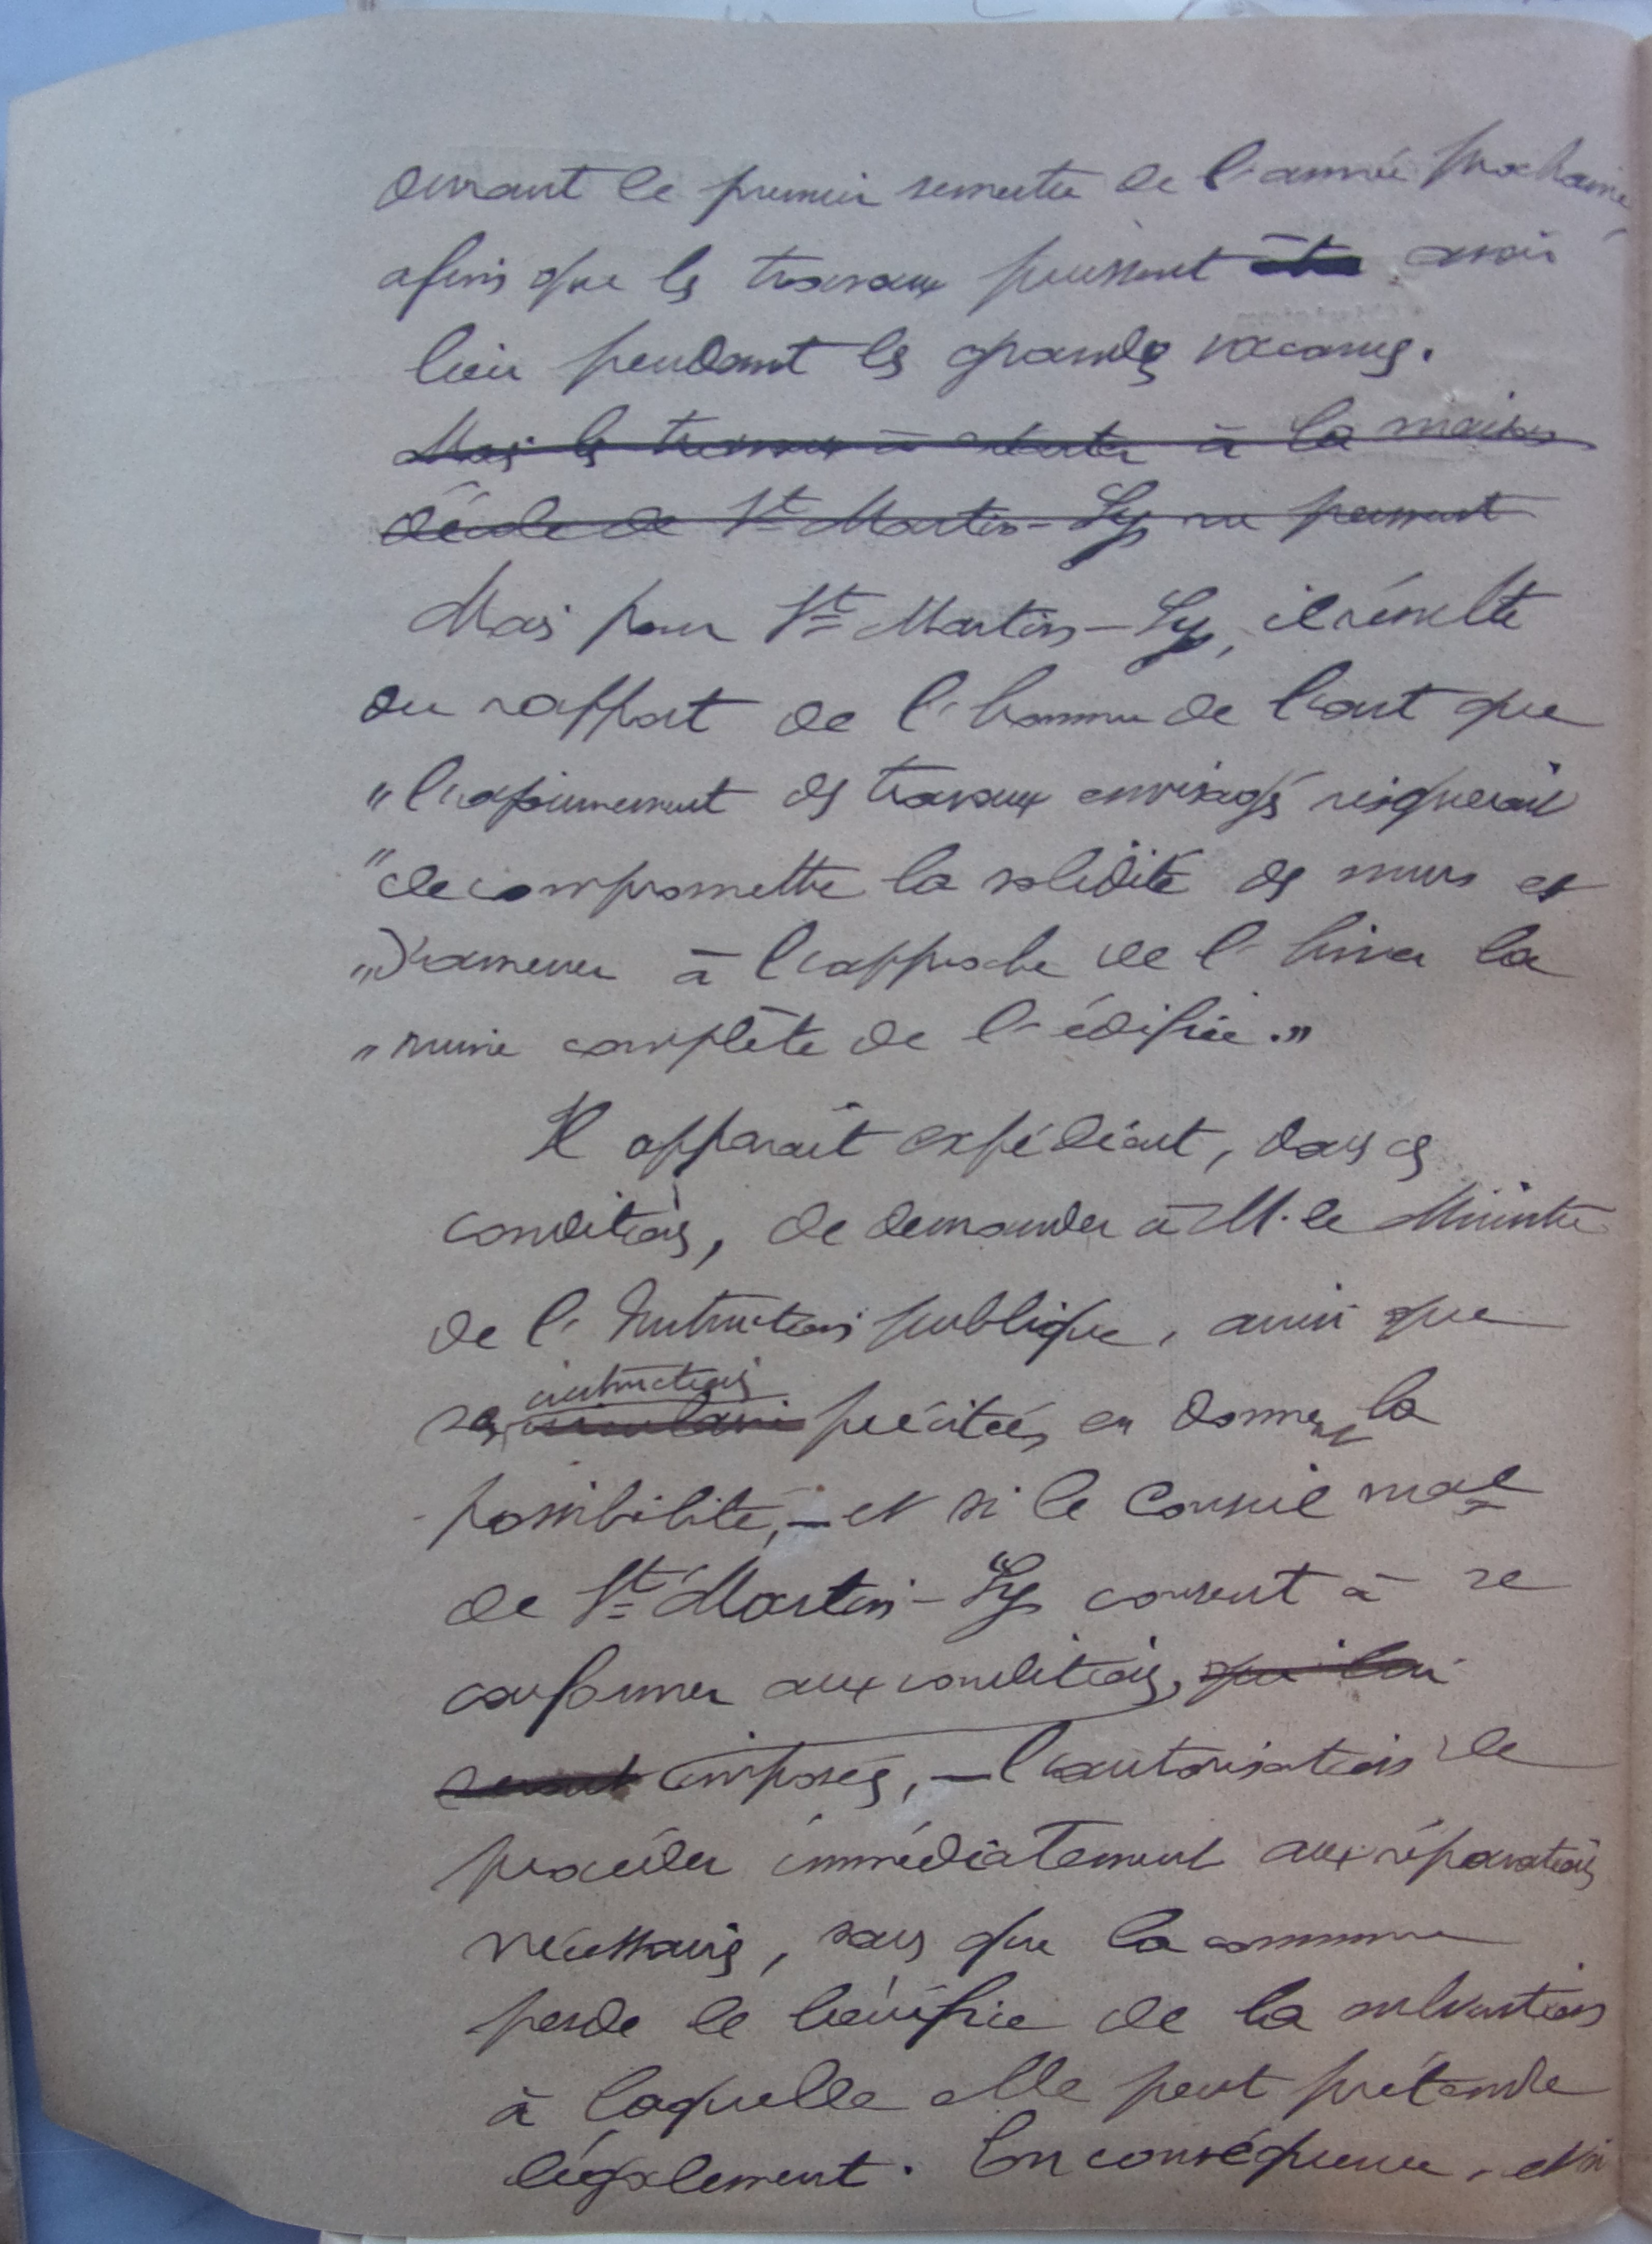 durant le premier semestre de l'année prochaine
afin que les travaux puissent être avoir
lieu pendant les grandes vacances.
Mais les travaux à exécuter à la maison
d'école de St Martin-Lys ne peuvent
Mais pour St Martin-Lys, il résulte
du rapport de l'homme de l'art que
"l'ajournement des travaux envisagés risquerait
"de compromettre la solidité des murs et
"d'amener à l'approche de l'hiver la
"ruine complète de l'édifice."
Il apparaît expédient, dans ces
conditions, de demander à M. le Ministre
de l'Instruction publique, ainsi que
instructions
ses circulaires précitées en donnent la
possibilité, — et si le Conseil mal
de St Martin-Lys consent à se
conformer aux conditions, qui lui
seront imposées, — l'autorisation de
procéder immédiatement aux réparations
nécessaires, sans que la commune
perde le bénéfice de la subvention
à laquelle elle peut prétendre
légalement. En conséquence, et si